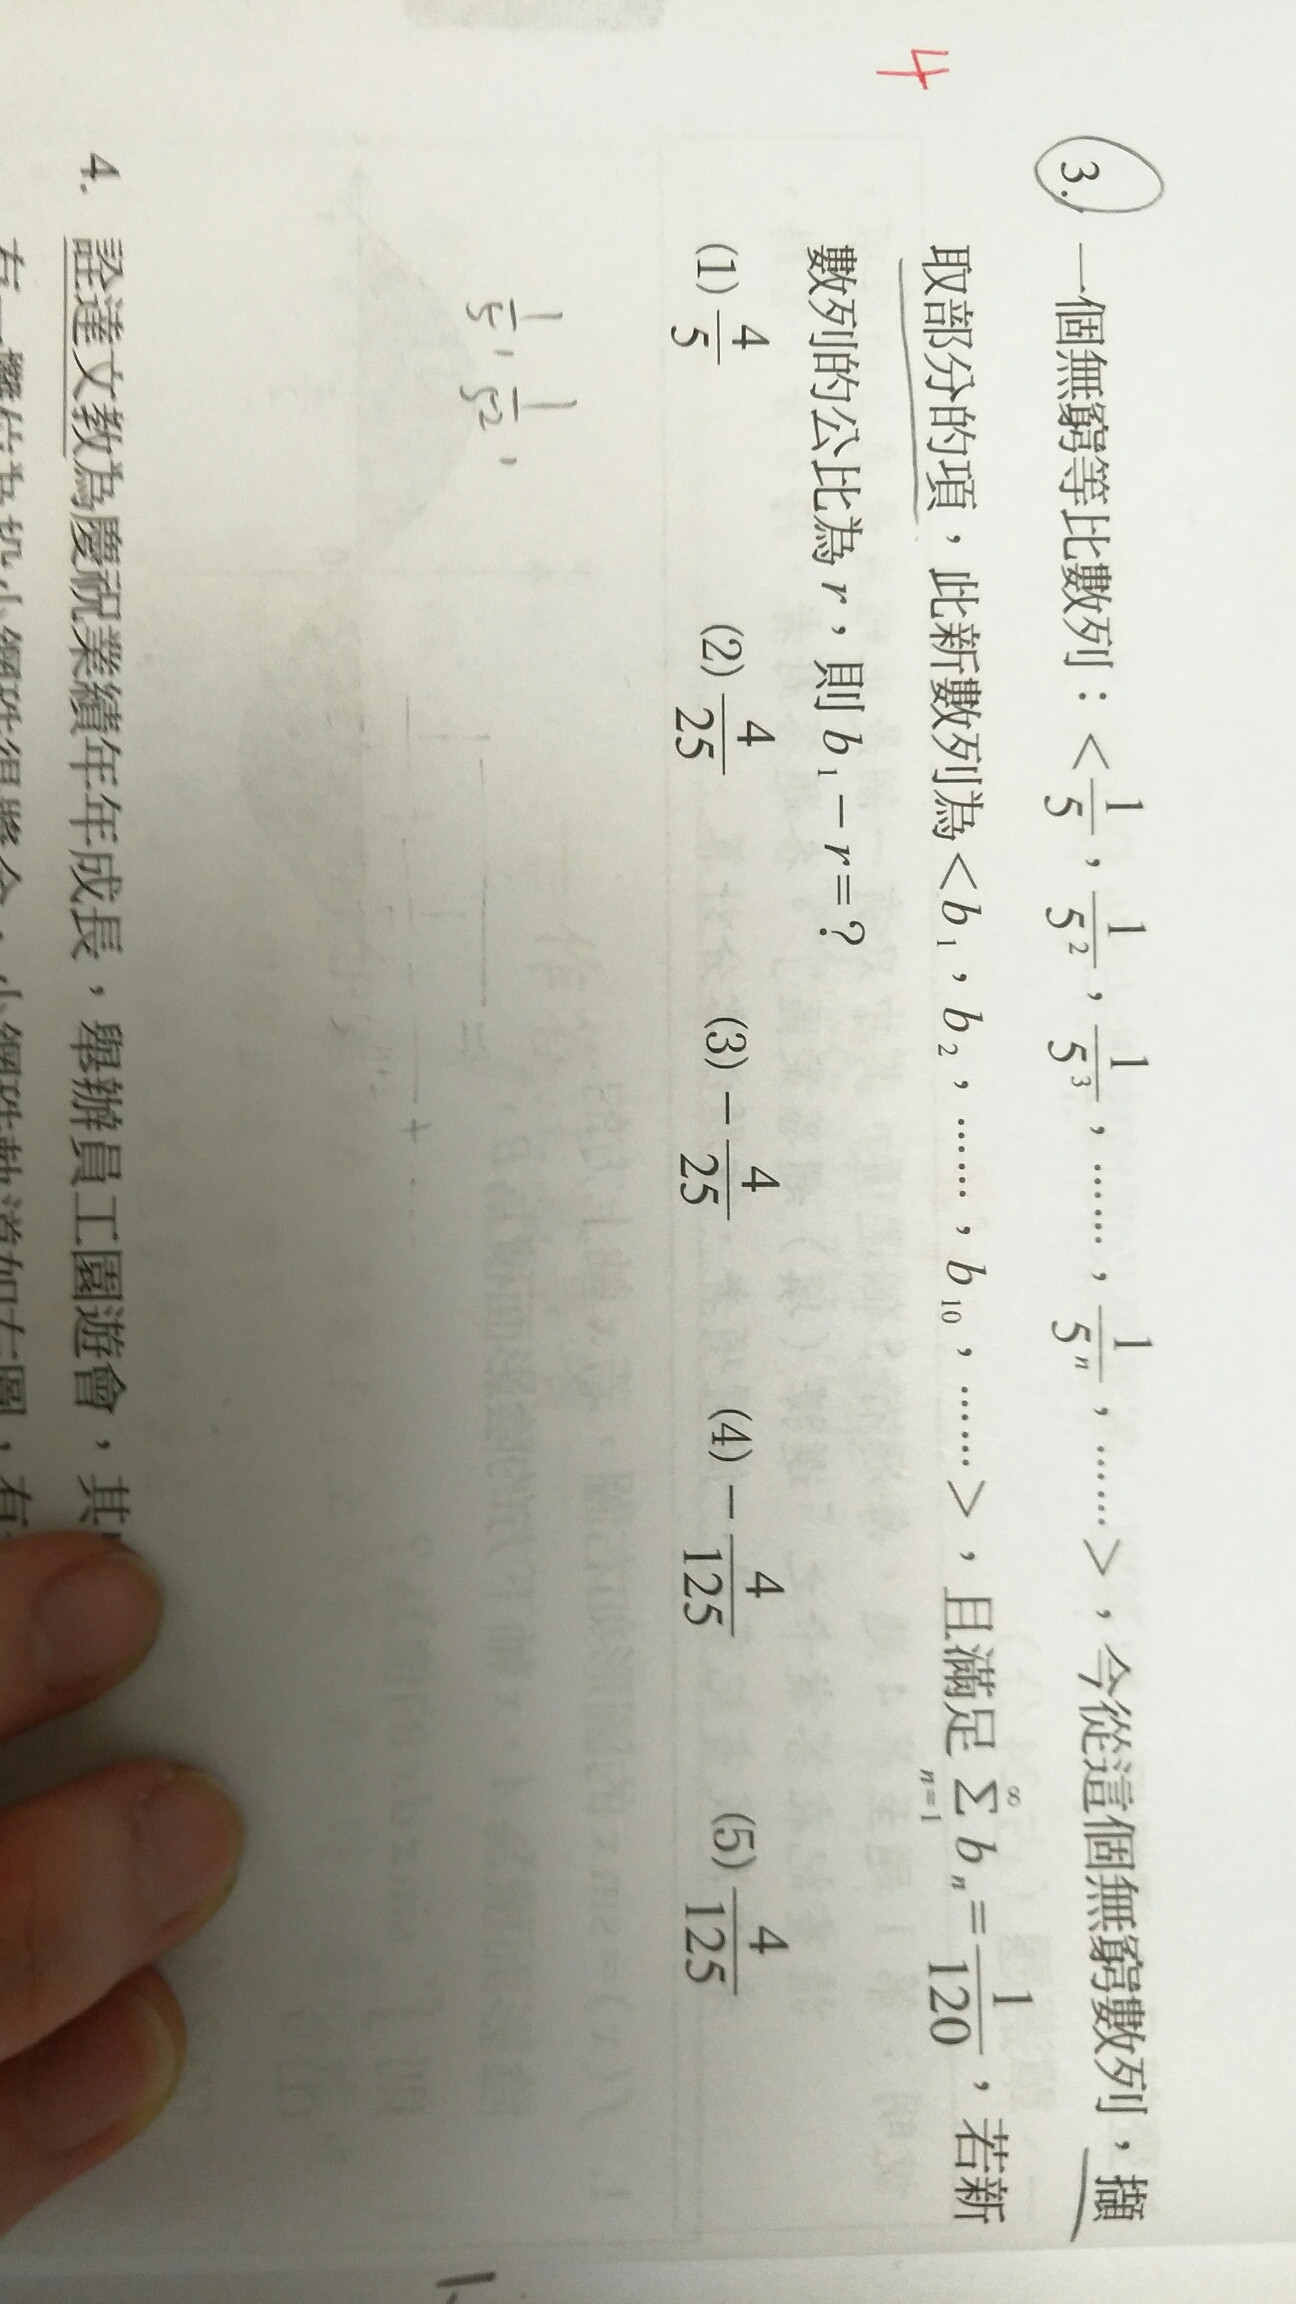 4
3. 一個無窮等比數列：<1/5，1/5²，1/5³，……，1/5ⁿ，……>，今從這個無窮數列，擷
取部分的項，此新數列為<b₁，b₂，……，b₁₀，……>，且滿足 ∑_{n=1}^{∞} bₙ=1/120，若新
數列的公比為 r，則 b₁－r=？
(1) 4/5 (2) 4/25 (3) －4/25 (4) －4/125 (5) 4/125
1/5 , 1/5² ,
4. 詮達文教為慶祝業績年年成長，舉辦員工園遊會，其